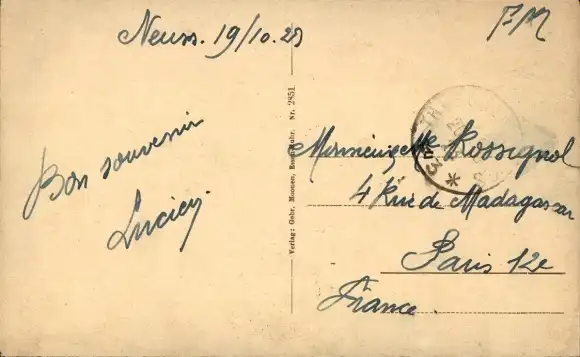 Neuss. 19/10.25
F M
Bon souvenir
Lucien
Verlag: Gebr. Moonen, Nr. 2851
Rossignol
4 Rue de Madagascar
Paris 12e
France.